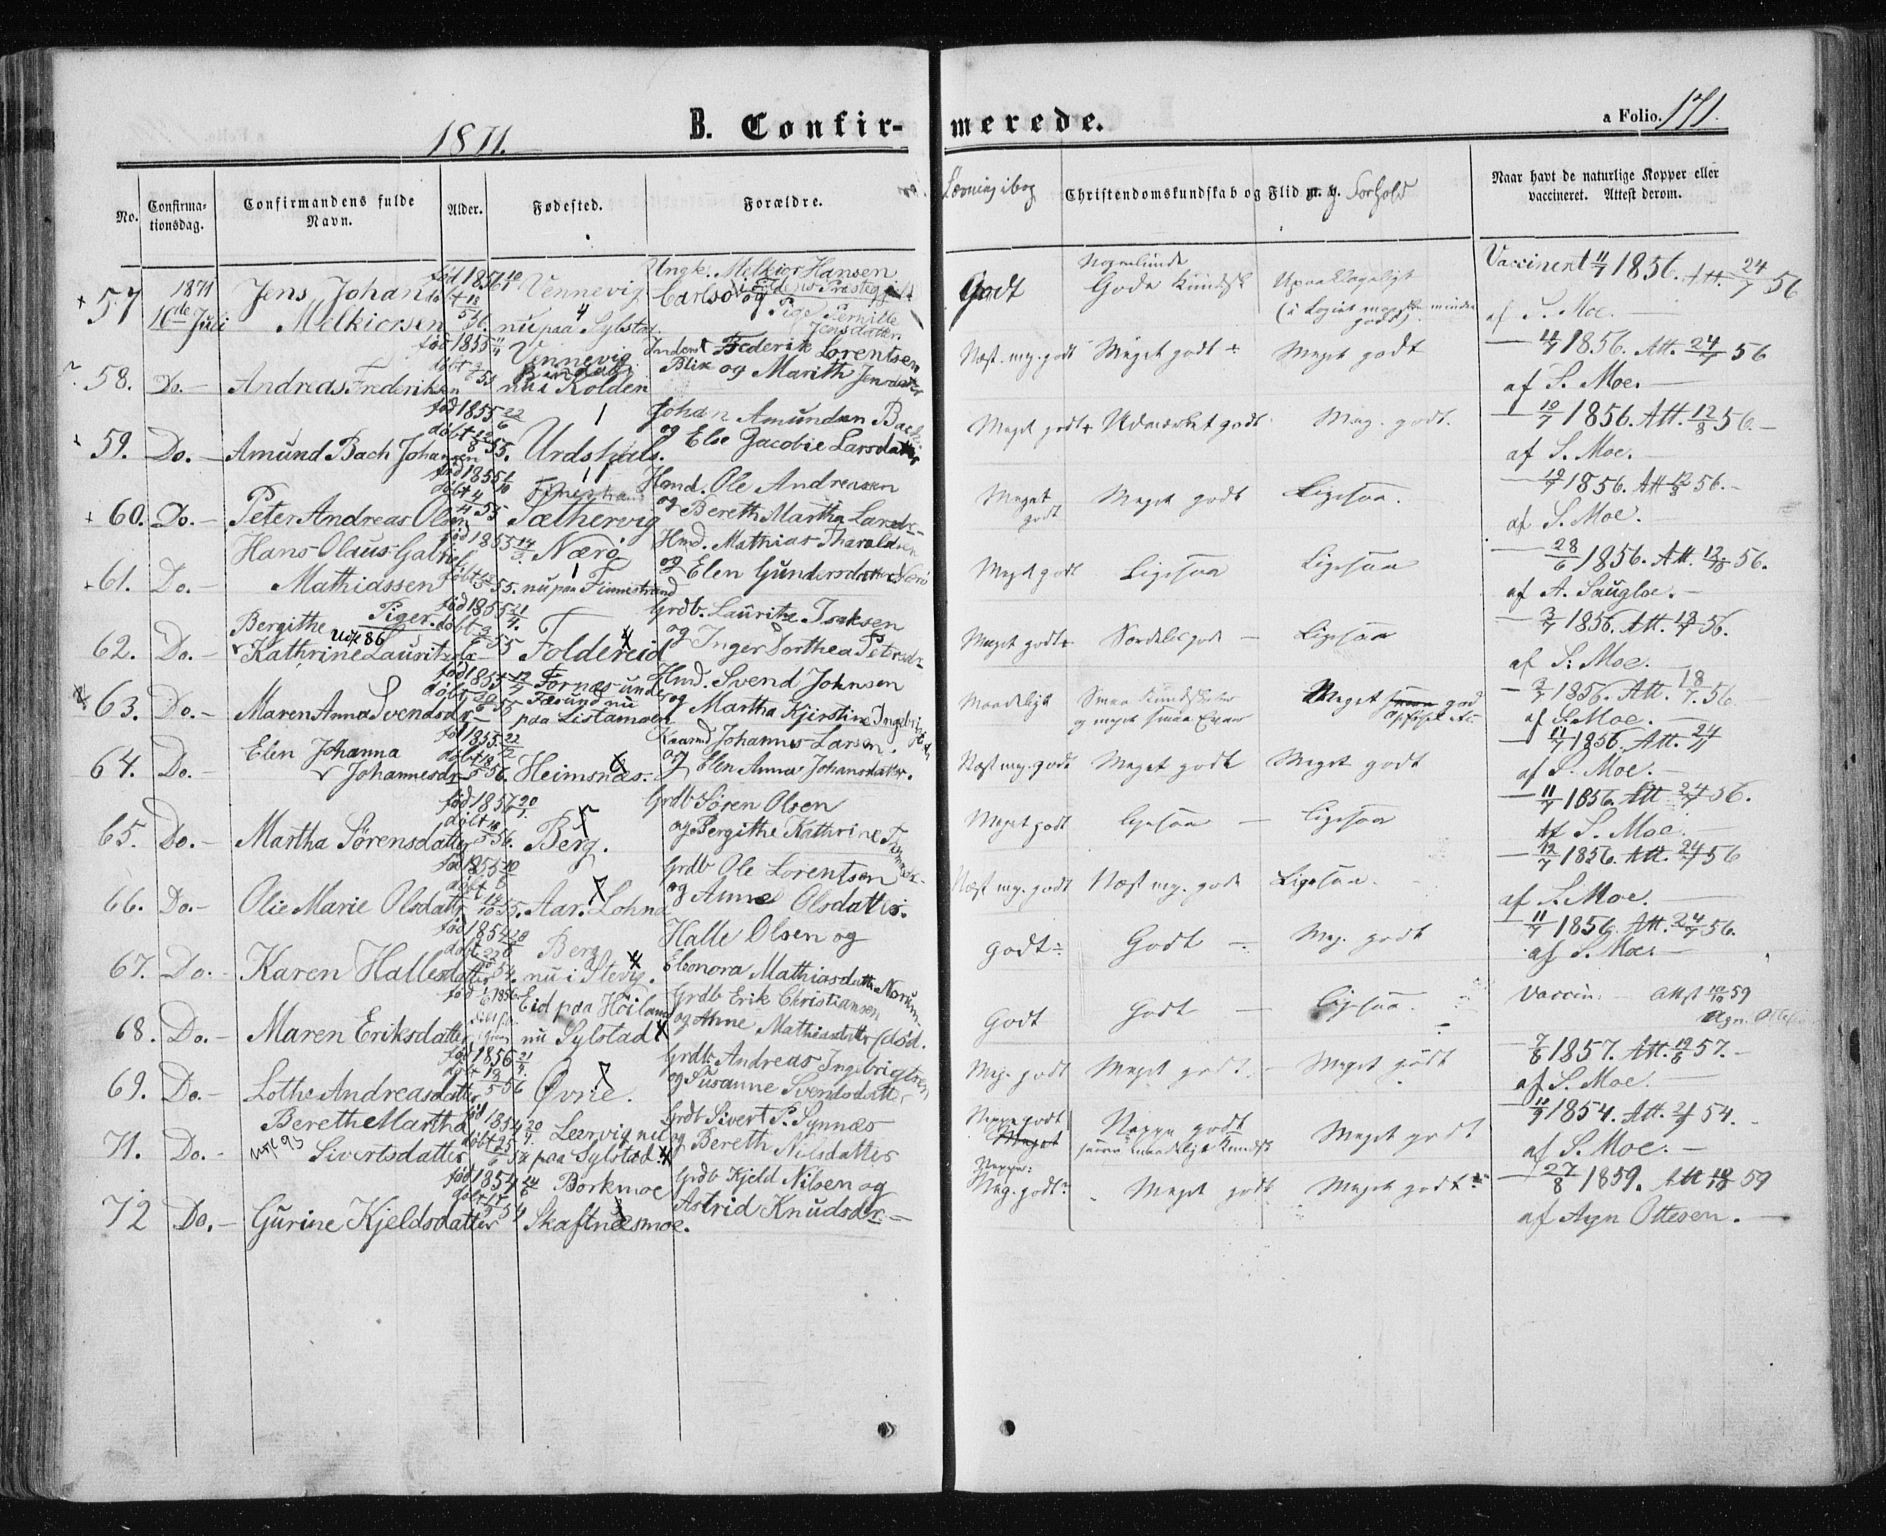 1871.
B. Confirmerede.
a Folio. 171.
No.
Confirmationsdag.
Confirmandens fulde Navn.
Alder.
Fødested.
Forældre.
Læsning i bog
Christendomskundskab og Flid
Forhold
Naar havt de naturlige Kopper eller vaccineret. Attest derom.
57 1871 16de Juli Jens Johan Melkiorsen Vennevig nu paa Sylstad Ungk. Melkior Hansen Carlsø og Pige Pernille Jensdatter Godt Nogenlunde Gode Kundsk Upaaklageligt Vaccineret 11/7 1856. Att. 24/7 56 af S. Moe.
58. Do. Andreas Frederiksen født 1855 Vennevig nu i Kolden Inderst Frederik Lorentsen Blik og Marith Jensdatter Næst. my. godt Meget godt Meget godt 11/7 1856. Att. 24/7 56 af S. Moe.
59. Do. Amund Bach Johansen født 1855 22/6 døbt 12/8 55. Urdshals. Johan Amundsen Bach og Else Jacobie Larsdatter Meget godt Udmærket godt Meg. godt. 10/7 1856. Att. 12/8 56. af S. Moe.
60. Do. Peter Andreas Olsen født 1855 Finnestrand Sæthervig Hmd. Ole Andreasen og Bereth Martha Larsdr Meget godt Meget godt Ligesaa. 1856. Att 56. af S. Moe.
61. Do. Hans Olaus Gabriel Mathiassen født 1855 14/3 Nærø nu paa Finnestrand Hmd. Mathias Tharaldsen og Elen Gundersdatter Nærø Meget godt Ligesaa Ligesaa 28/6 1856. Att. 56. af A. Saugloe.
Piger.
62. Do. Bergithe Kathrine Lauritsdr Udg 86 født 1855 21/4. Foldereid Grdb. Laurits Isaksen og Inger Dorthea Petersdr Meget godt Særdeles godt Ligesaa 3/7 1856. Att. 18/7 56. af S. Moe.
63. Do. Maren Anna Svendsdr født 1855 Fornæs under Færsund nu paa Listamoen Hmd. Svend Johnsen og Martha Kjirstine Ingebrigtsdr Maadeligt Smaa Kundskaber og meget smaa Evner Meget god Opførsel 3/7 1856. Att. 18/7 56. af S. Moe.
64. Do. Elen Johanna Johannesdr født 1855. døbt 56. Heimsnæs. Johannes Larsen og Elen Anna Johansdatter. Næst my. godt Meget godt Meget godt 11/7 1856. Att. 24/7 af S. Moe.
65. Do. Martha Sørensdatter døbt 56. Berg. Grdb Søren Olsen og Bergithe Kathrine Meget godt Ligesaa Ligesaa 11/7 1856. Att 24/7 56. af S. Moe.
66. Do. Olie Marie Olsdatter født 1855 døbt 14/10 55. Aar. Lohne Grdb Ole Lorentsen og Anne Olsdatter. Næst my. godt Næst my. godt Ligesaa. 12/7 1856. Att. 24/7 56 af S. Moe.
67. Do. Karen Hallesdatter født 1854 døbt 54. Berg nu i Stevig. Halle Olsen og Eleonora Mathiasdatter Norum Godt Godt Meg. godt 11/7 1856. Att. 24/7 56. af S. Moe.
68. Do. Maren Eriksdatter født 1856 Eid paa Höiland nu Sylstad Grdb Erik Christiansen og Anne Mathiasdatter (død. Godt Godt Ligesaa. Vaccin. Attest 59 Agn. Ottesen
69. Do. Lothe Andreasdatter født 1856 21/4. døbt 13/5 56 Øvrie. Grdb Andreas Ingebrigtsen og Susanne Svendsdatter Meg. godt Meget godt. Meget godt 7/6 1857. Att. 57. af S. Moe.
71. Do. Berethe Martha Sivertsdatter Udg 93 født 1854 20/4. døbt 25/5 54 Leervig nu paa Sylstad. Grdb Sivert P. Synnæs og Bereth Nilsdatter Neppe godt Neppe godt Meget godt 1854. Att. 54. af S. Moe.
72 Do. Gurine Kjeldsdatter født 1854 døbt 54 Borkmoe Skaftnæsmoe. Grdb Kjeld Nilsen og Astrid Knudsdr Neppe Meg. godt Meget godt Meget godt 27/8 1859. Att 59 af Agn Ottesen.